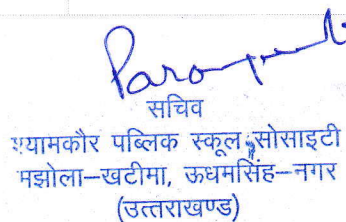 सचिव
श्यामकौर पब्लिक स्कूल सोसाइटी
मझोला–खटीमा, ऊधमसिंह–नगर
(उत्तराखण्ड)